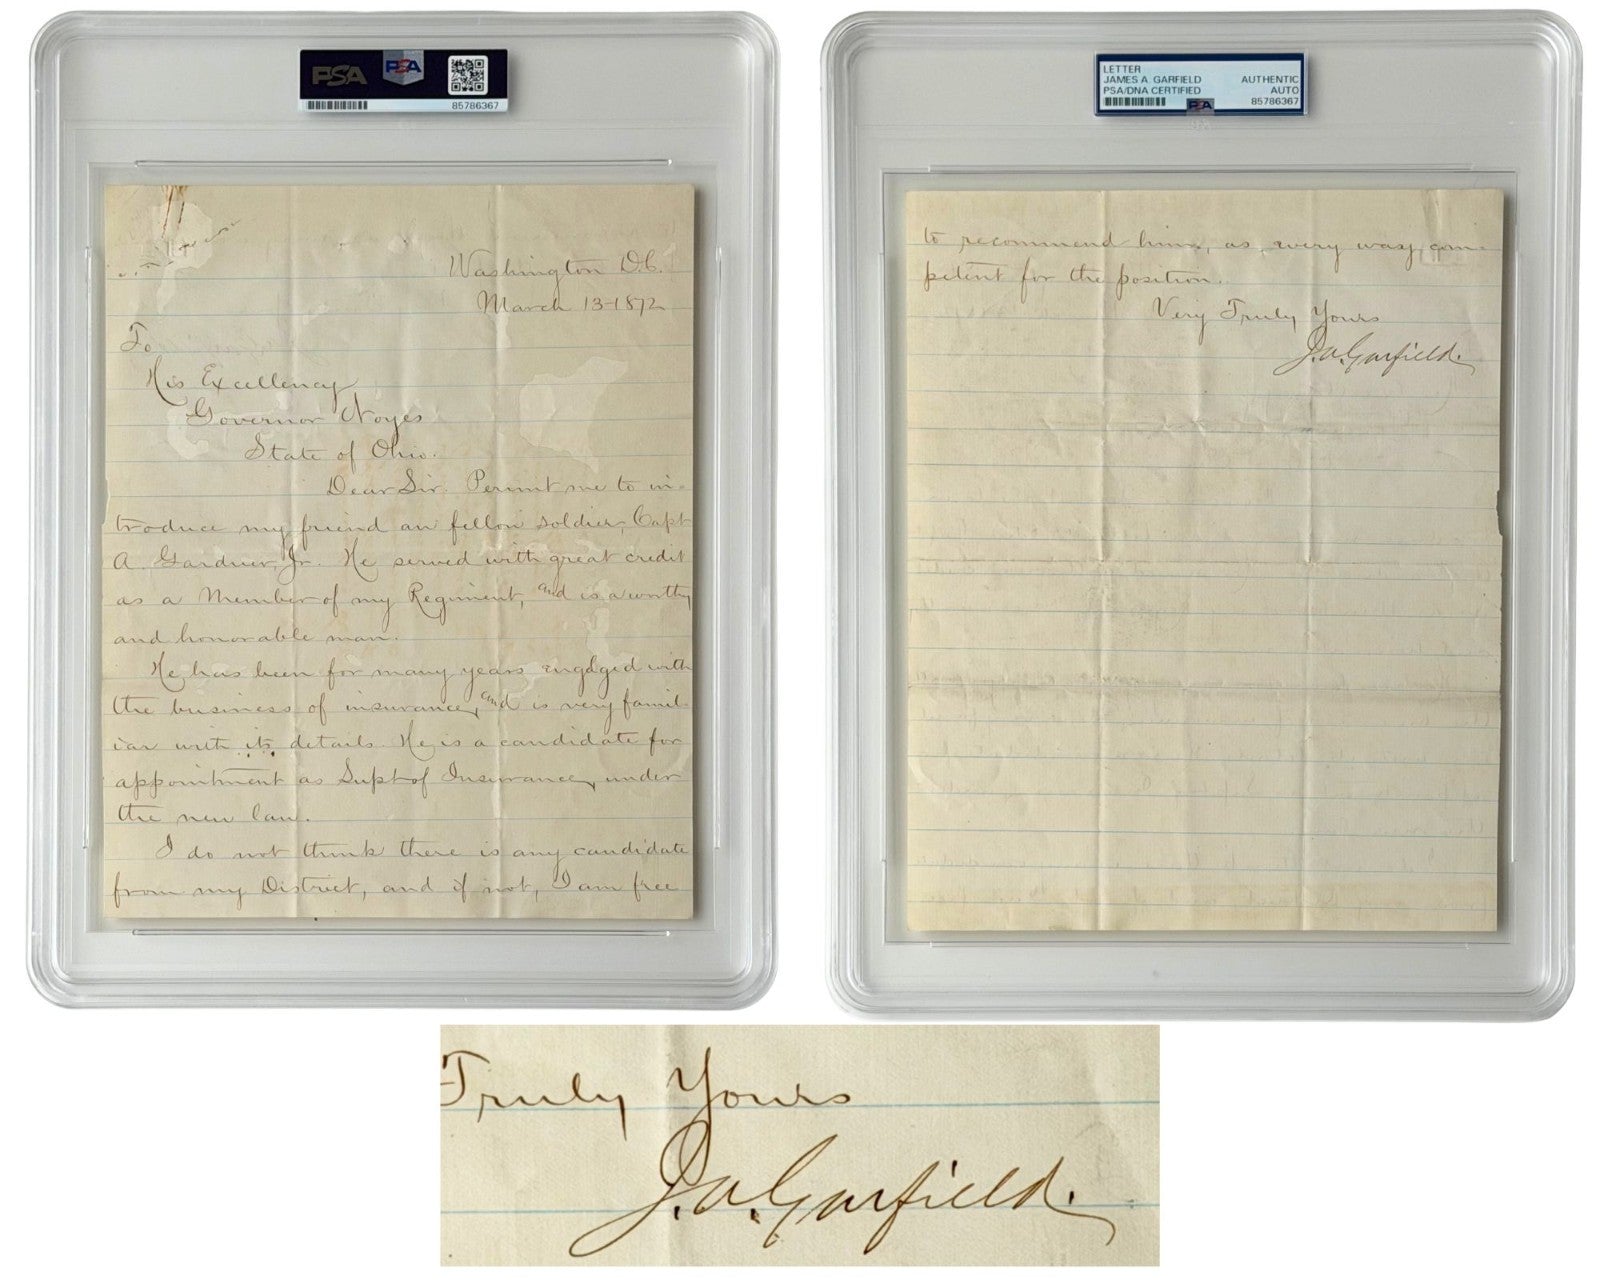 PSA
PSA
85786367
Washington D.C.
March 13-1872
To
His Excellency
Governor Noyes
State of Ohio.
Dear Sir. Permit me to in-
troduce my friend an fellow soldier, Capt
A. Gardner, Jr. He served with great credit
as a Member of my Regiment, and is a worthy
and honorable man.
He has been for many years engaged with
the business of insurance, and is very famil-
iar with its details. He is a candidate for
appointment as Supt of Insurance, under
the new law.
I do not think there is any candidate
from my District, and if not, I am free
LETTER
JAMES A. GARFIELD AUTHENTIC
PSA/DNA CERTIFIED AUTO
PSA 85786367
to recommend him, as every way com-
petent for the position.
Very Truly Yours
J.A. Garfield.
Truly Yours
J.A. Garfield.